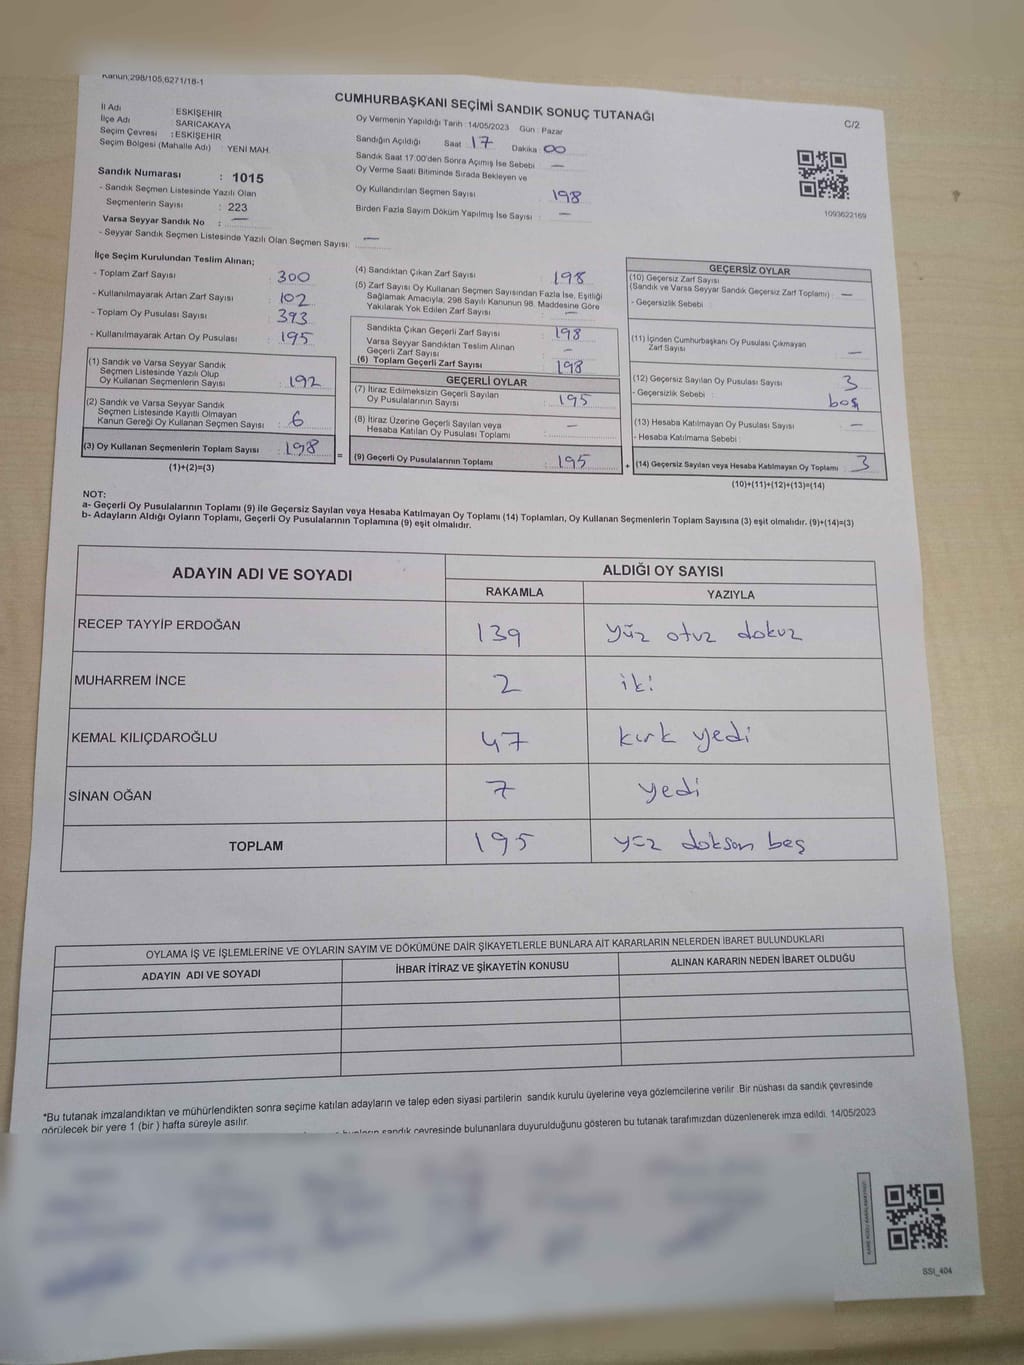 Kanun;298/105,6271/18-1
CUMHURBAŞKANI SEÇİMİ SANDIK SONUÇ TUTANAĞI
C/2
İl Adı : ESKİŞEHİR
İlçe Adı : SARICAKAYA
Seçim Çevresi : ESKİŞEHİR
Seçim Bölgesi (Mahalle Adı) : YENİ MAH.
Oy Vermenin Yapıldığı Tarih :14/05/2023 Gün : Pazar
Sandığın Açıldığı Saat 17 Dakika 00
Sandık Saat 17.00'den Sonra Açımış İse Sebebi : —
Oy Verme Saati Bitiminde Sırada Bekleyen ve
Oy Kullandırılan Seçmen Sayısı 198
Birden Fazla Sayım Döküm Yapılmış İse Sayısı : —
1093622169
Sandık Numarası : 1015
- Sandık Seçmen Listesinde Yazılı Olan
Seçmenlerin Sayısı : 223
Varsa Seyyar Sandık No : —
- Seyyar Sandık Seçmen Listesinde Yazılı Olan Seçmen Sayısı: —
İlçe Seçim Kurulundan Teslim Alınan;
- Toplam Zarf Sayısı : 300
- Kullanılmayarak Artan Zarf Sayısı : 102
- Toplam Oy Pusulası Sayısı : 393
- Kullanılmayarak Artan Oy Pusulası : 195
(1) Sandık ve Varsa Seyyar Sandık
Seçmen Listesinde Yazılı Olup
Oy Kullanan Seçmenlerin Sayısı : 192
(2) Sandık ve Varsa Seyyar Sandık
Seçmen Listesinde Kayıtlı Olmayan
Kanun Gereği Oy Kullanan Seçmen Sayısı : 6
(3) Oy Kullanan Seçmenlerin Toplam Sayısı : 198
(1)+(2)=(3)
=
(4) Sandıktan Çıkan Zarf Sayısı : 198
(5) Zarf Sayısı Oy Kullanan Seçmen Sayısından Fazla İse, Eşitliği
Sağlamak Amacıyla, 298 Sayılı Kanunun 98. Maddesine Göre
Yakılarak Yok Edilen Zarf Sayısı : —
Sandıkta Çıkan Geçerli Zarf Sayısı : 198
Varsa Seyyar Sandıktan Teslim Alınan
Geçerli Zarf Sayısı : —
(6) Toplam Geçerli Zarf Sayısı : 198
GEÇERLİ OYLAR
(7) İtiraz Edilmeksizin Geçerli Sayılan
Oy Pusulalarının Sayısı : 195
(8) İtiraz Üzerine Geçerli Sayılan veya
Hesaba Katılan Oy Pusulası Toplamı : —
(9) Geçerli Oy Pusulalarının Toplamı : 195
+
GEÇERSİZ OYLAR
(10) Geçersiz Zarf Sayısı
(Sandık ve Varsa Seyyar Sandık Geçersiz Zarf Toplamı) : —
- Geçersizlik Sebebi :
(11) İçinden Cumhurbaşkanı Oy Pusulası Çıkmayan
Zarf Sayısı : —
(12) Geçersiz Sayılan Oy Pusulası Sayısı : 3
- Geçersizlik Sebebi : boş
(13) Hesaba Katılmayan Oy Pusulası Sayısı : —
- Hesaba Katılmama Sebebi :
(14) Geçersiz Sayılan veya Hesaba Katılmayan Oy Toplamı : 3
(10)+(11)+(12)+(13)=(14)
NOT:
a- Geçerli Oy Pusulalarının Toplamı (9) ile Geçersiz Sayılan veya Hesaba Katılmayan Oy Toplamı (14) Toplamları, Oy Kullanan Seçmenlerin Toplam Sayısına (3) eşit olmalıdır. (9)+(14)=(3)
b- Adayların Aldığı Oyların Toplamı, Geçerli Oy Pusulalarının Toplamına (9) eşit olmalıdır.
ADAYIN ADI VE SOYADI
ALDIĞI OY SAYISI
RAKAMLA YAZIYLA
RECEP TAYYİP ERDOĞAN 139 yüz otuz dokuz
MUHARREM İNCE 2 iki
KEMAL KILIÇDAROĞLU 47 kırk yedi
SİNAN OĞAN 7 yedi
TOPLAM 195 yüz doksan beş
OYLAMA İŞ VE İŞLEMLERİNE VE OYLARIN SAYIM VE DÖKÜMÜNE DAİR ŞİKAYETLERLE BUNLARA AİT KARARLARIN NELERDEN İBARET BULUNDUKLARI
ADAYIN ADI VE SOYADI İHBAR İTİRAZ VE ŞİKAYETİN KONUSU ALINAN KARARIN NEDEN İBARET OLDUĞU
*Bu tutanak imzalandıktan ve mühürlendikten sonra seçime katılan adayların ve talep eden siyasi partilerin sandık kurulu üyelerine veya gözlemcilerine verilir .Bir nüshası da sandık çevresinde
görülecek bir yere 1 (bir ) hafta süreyle asılır.
sandık çevresinde bulunanlara duyurulduğunu gösteren bu tutanak tarafımızdan düzenlenerek imza edildi. 14/05/2023
SSI_404